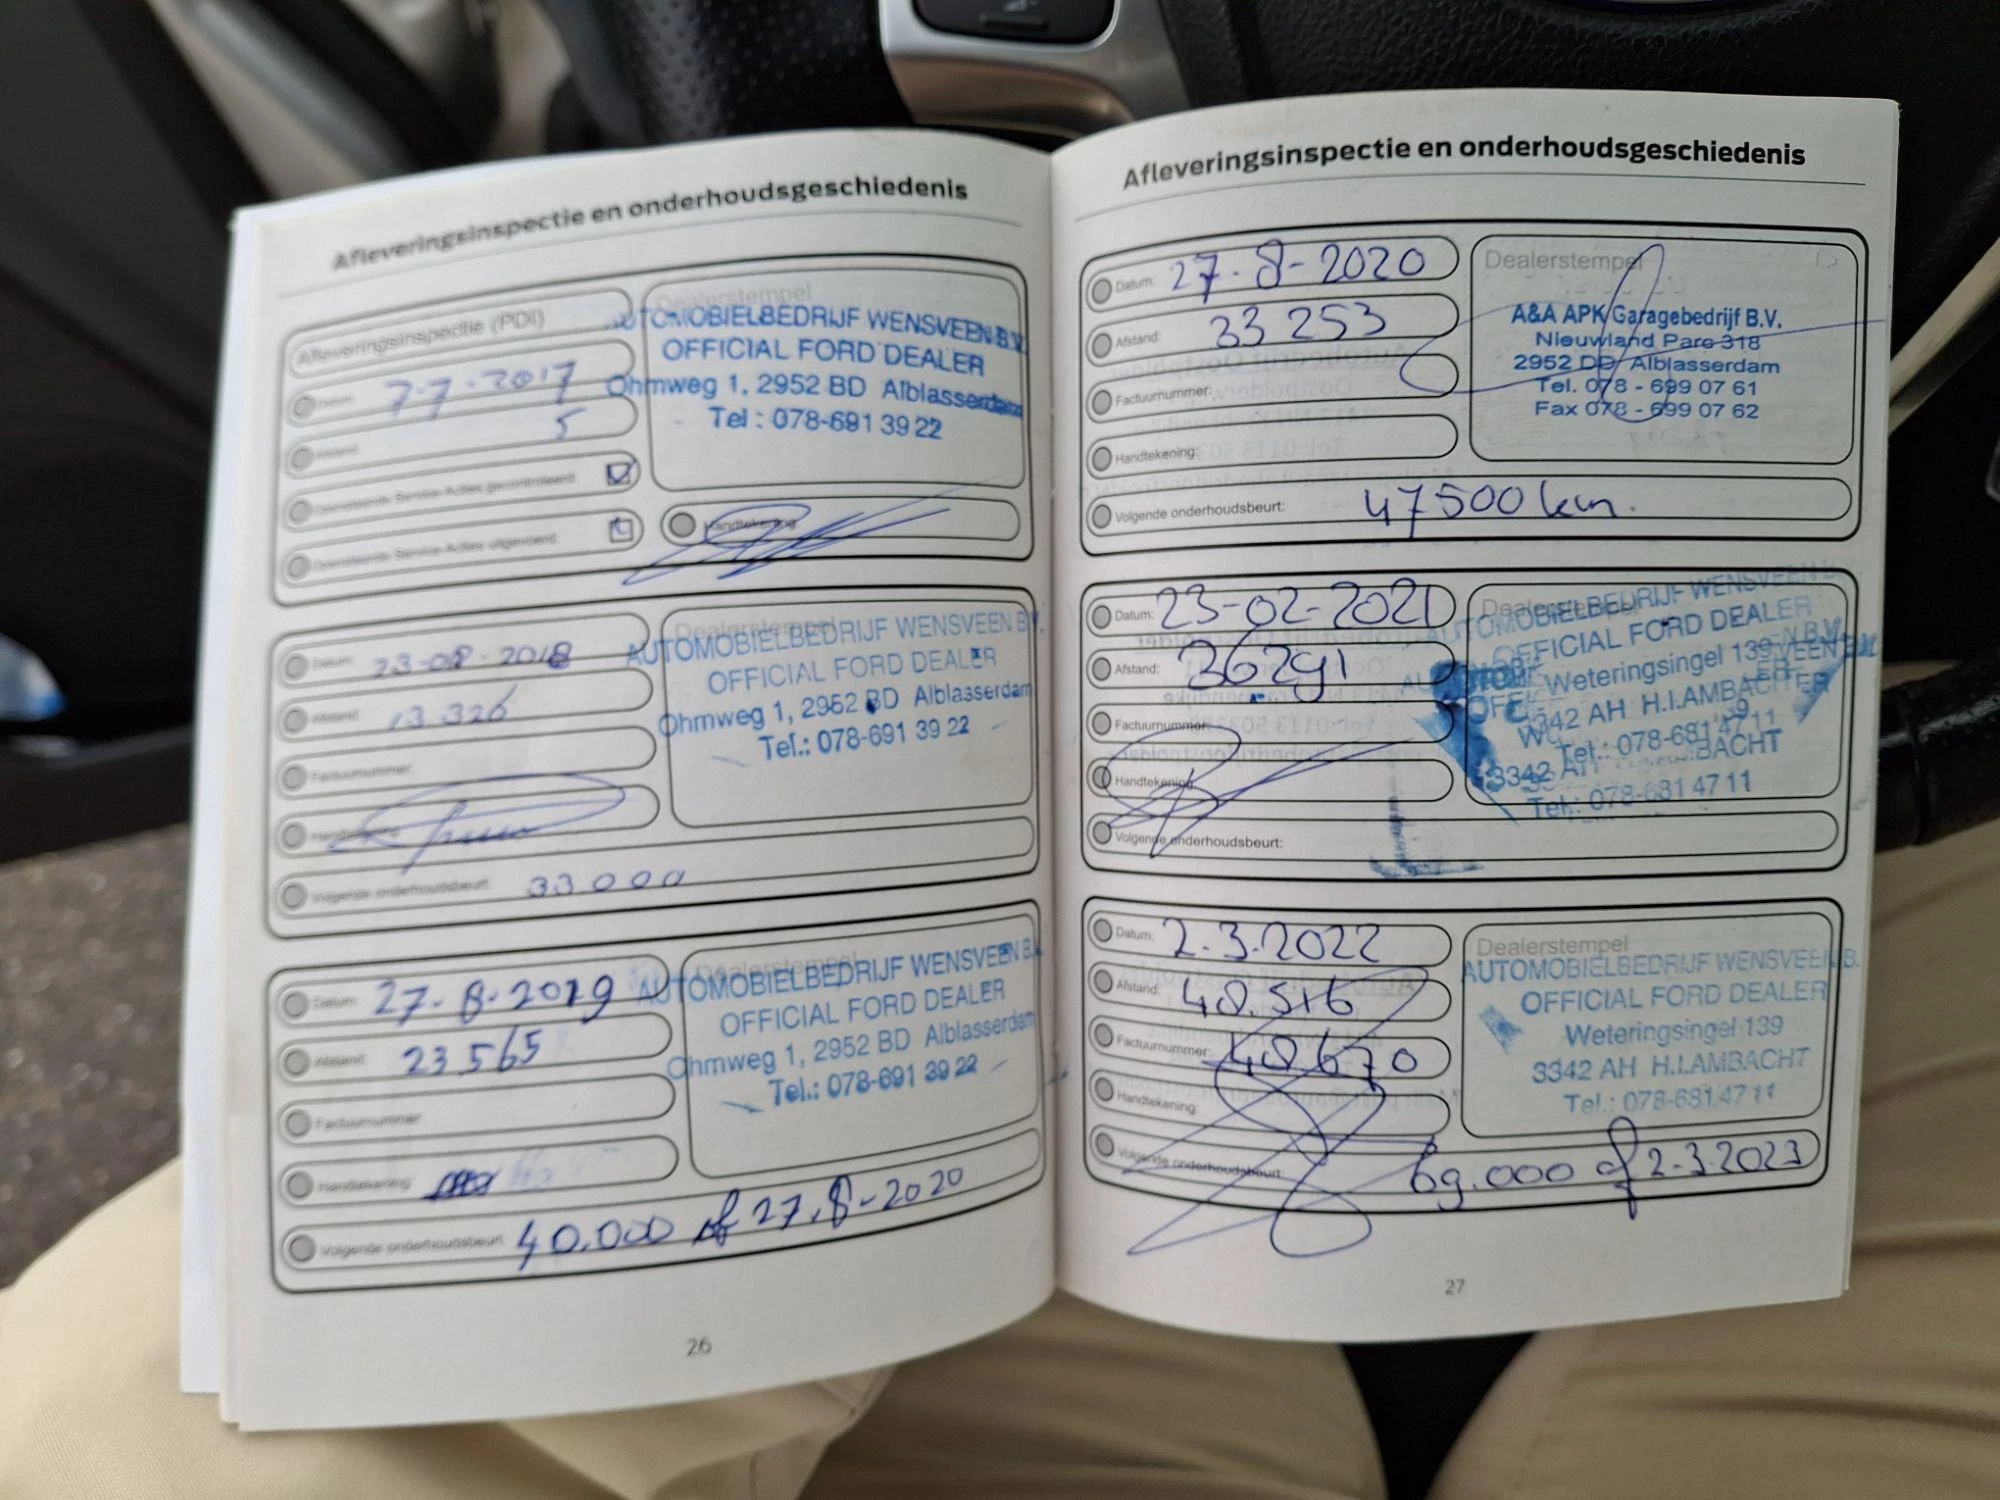 Afleveringsinspectie en onderhoudsgeschiedenis
Afleveringsinspectie (PDI)
Datum: 7-7-2017
Afstand: 5
Openstaande Service Acties gecontroleerd:
Openstaande Service Acties uitgevoerd:
Dealerstempel
AUTOMOBIELBEDRIJF WENSVEEN B.V.
OFFICIAL FORD DEALER
Ohmweg 1, 2952 BD Alblasserdam
Tel : 078-691 39 22
Handtekening:
Datum: 23-08-2018
Afstand: 13 326
Factuurnummer:
Handtekening:
Volgende onderhoudsbeurt: 33.000
Dealerstempel
AUTOMOBIELBEDRIJF WENSVEEN B.V.
OFFICIAL FORD DEALER
Ohmweg 1, 2952 BD Alblasserdam
Tel.: 078-691 39 22
Datum: 27-8-2019
Afstand: 23.565
Factuurnummer:
Handtekening:
Volgende onderhoudsbeurt: 40.000 of 27.8-2020
Dealerstempel
AUTOMOBIELBEDRIJF WENSVEEN B.V.
OFFICIAL FORD DEALER
Ohmweg 1, 2952 BD Alblasserdam
Tel.: 078-691 39 22
26
Afleveringsinspectie en onderhoudsgeschiedenis
Datum: 27-8-2020
Afstand: 33 253
Factuurnummer:
Handtekening:
Volgende onderhoudsbeurt: 47500 km.
Dealerstempel
A&A APK Garagebedrijf B.V.
Nieuwland Parc 318
2952 DD Alblasserdam
Tel. 078 - 699 07 61
Fax 078 - 699 07 62
Datum: 23-02-2021
Afstand: 36291
Factuurnummer:
Handtekening:
Volgende onderhoudsbeurt:
Dealerstempel
AUTOMOBIELBEDRIJF WENSVEEN B.V.
OFFICIAL FORD DEALER
Weteringsingel 139
3342 AH H.I.AMBACHT
Tel.: 078-681 47 11
Datum: 2.3.2022
Afstand: 48.516
Factuurnummer: 48670
Handtekening:
Volgende onderhoudsbeurt: 69.000 of 2-3.2023
Dealerstempel
AUTOMOBIELBEDRIJF WENSVEEN B.
OFFICIAL FORD DEALER
Weteringsingel 139
3342 AH H.I.AMBACHT
Tel.: 078-681 47 11
27